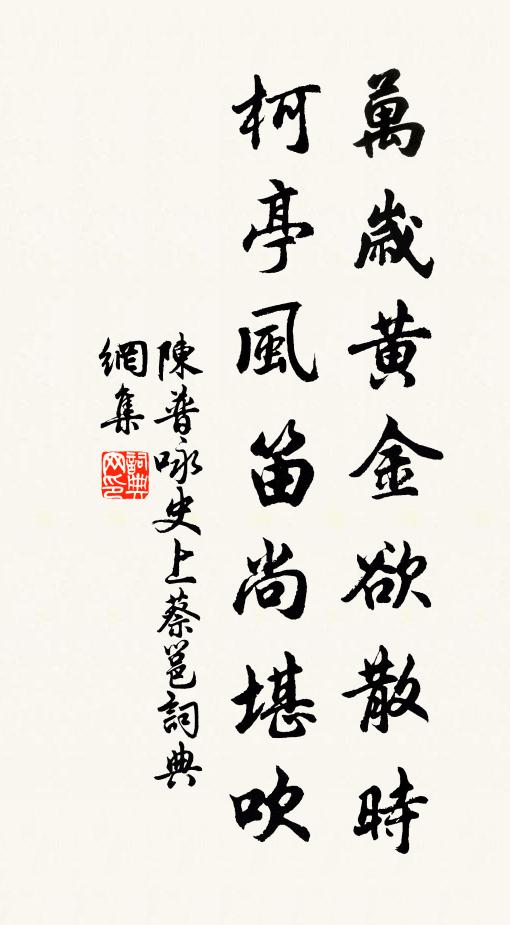 萬歲黃金欲散時
柯亭風笛尚堪吹
陳普咏史上蔡邕詞典
網集
詞典網印